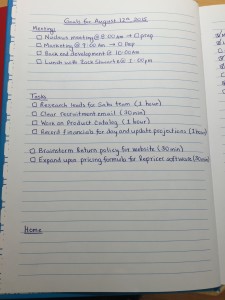 Goals for August 12th 2015
Meetings
□ Mastermind meeting @ 8:00am → □ prep
□ Marketing @ 9:00am → □ Prep
□ Back end development @ 10:00am
□ Lunch with Jack @ 1:00pm
Tasks
□ Research leads for Sales team (1 hour)
□ Clear recruitment email (30 min)
□ Work on Product Catalog (1 hour)
□ Record financials for day and update projections (1 hour)
□ Brainstorm Return policy for website (30 min)
□ Expand upon pricing formula for Repricer software (30 min)
Home